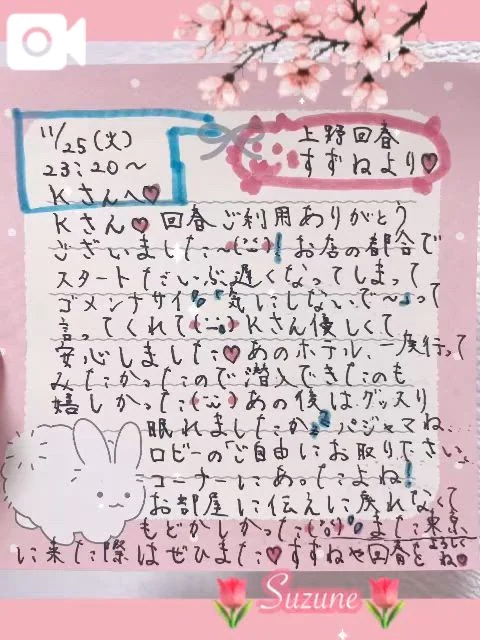 11/25(火)
23:20〜
Kさんへ♥
上野回春
すずねより♥
Kさん♥回春ご利用ありがとう
ございました〜!お店の都合で
スタートだいぶ遅くなってしまって
ゴメンナサイ💦「気にしないで〜」って
言ってくれてKさん優しくて
安心しました♥あのホテル、一度行って
みたかったので潜入できたのも
嬉しかったあの後はグッスリ
眠れましたか?パジャマね、
ロビーの「ご自由にお取り下さい」
コーナーにあったよね!
お部屋に伝えに戻れなくて
もどかしかった💦また東京
に来た際はぜひまた♥すずねや回春をよろしくね♥
Suzune